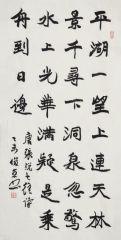 平湖一望上連天林
景千尋下洞泉忽驚
水上光華滿疑是乘
舟到日邊
唐張說詩